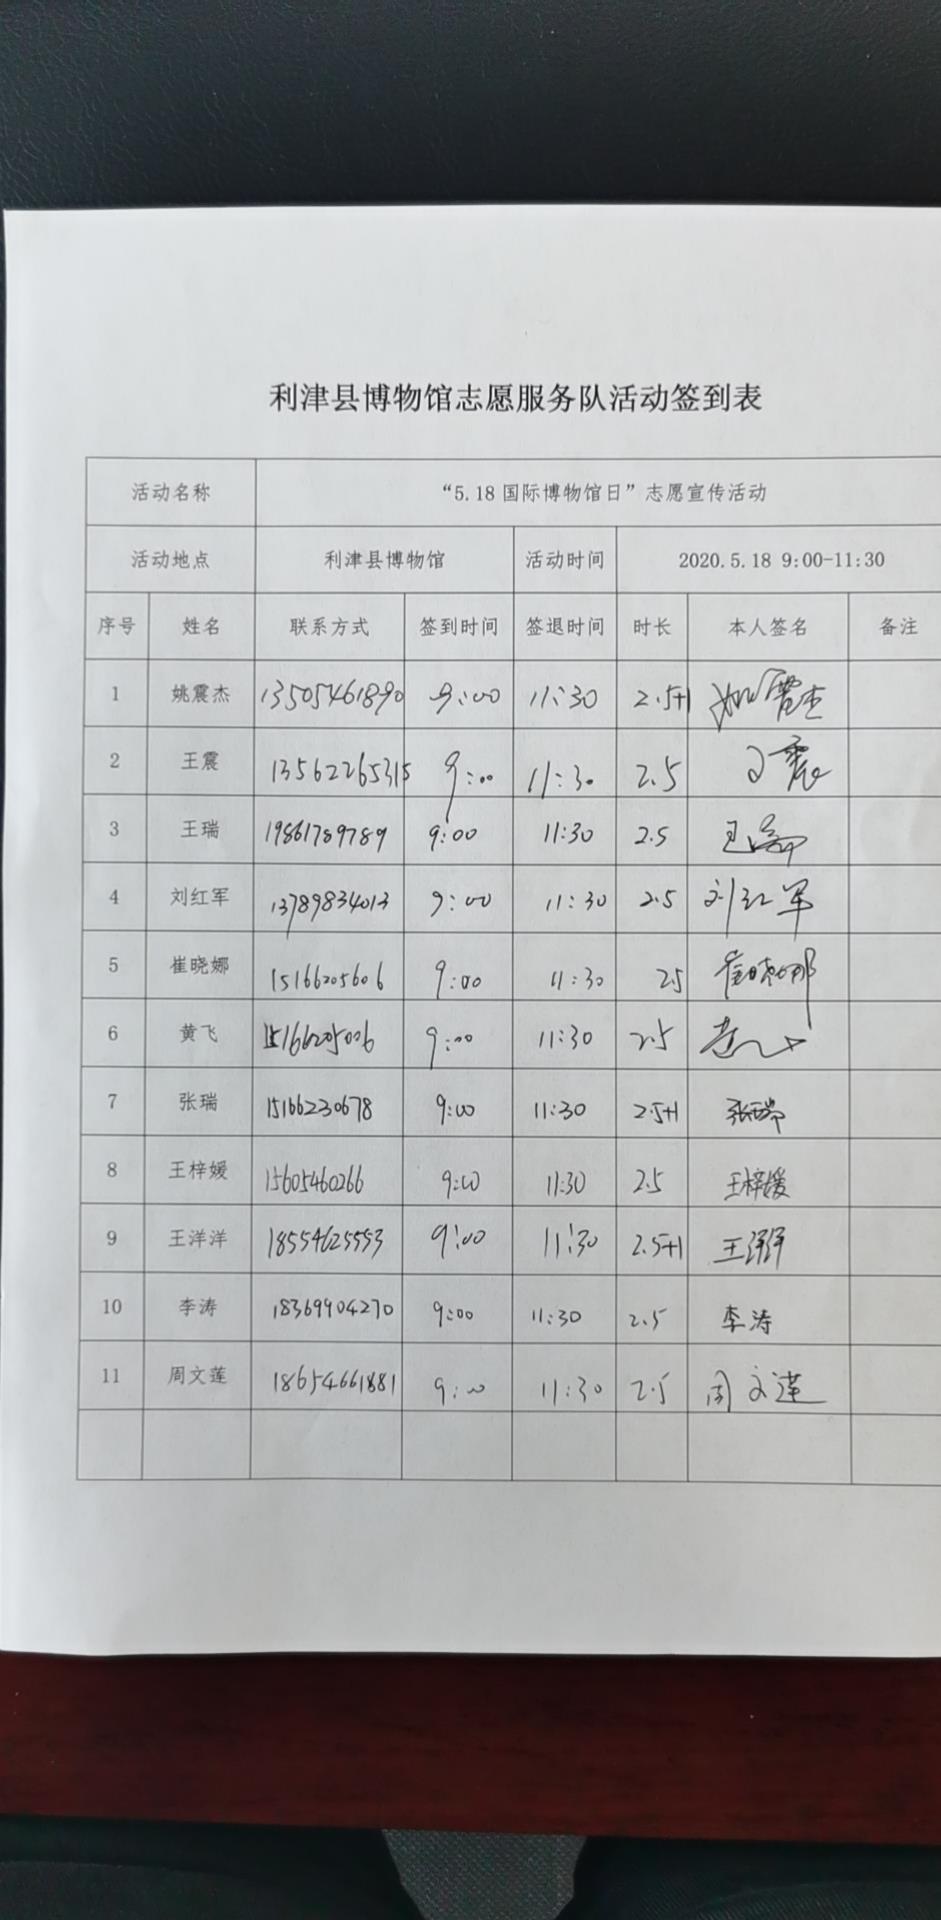 利津县博物馆志愿服务队活动签到表
活动名称 “5.18 国际博物馆日”志愿宣传活动
活动地点 利津县博物馆 活动时间 2020.5.18 9:00-11:30
序号 姓名 联系方式 签到时间 签退时间 时长 本人签名 备注
1 姚震杰 13505461890 9:00 11:30 2.5+1 姚震杰
2 王震 13562265315 9:00 11:30 2.5 王震
3 王瑞 19861789789 9:00 11:30 2.5 王瑞
4 刘红军 13789834013 9:00 11:30 2.5 刘红军
5 崔晓娜 15166205606 9:00 11:30 2.5 崔晓娜
6 黄飞 15166205006 9:00 11:30 2.5 黄飞
7 张瑞 15166230678 9:00 11:30 2.5+1 张瑞
8 王梓媛 15605460266 9:00 11:30 2.5 王梓媛
9 王洋洋 18554625553 9:00 11:30 2.5+1 王洋洋
10 李涛 18369904270 9:00 11:30 2.5 李涛
11 周文莲 18654661881 9:00 11:30 2.5 周文莲